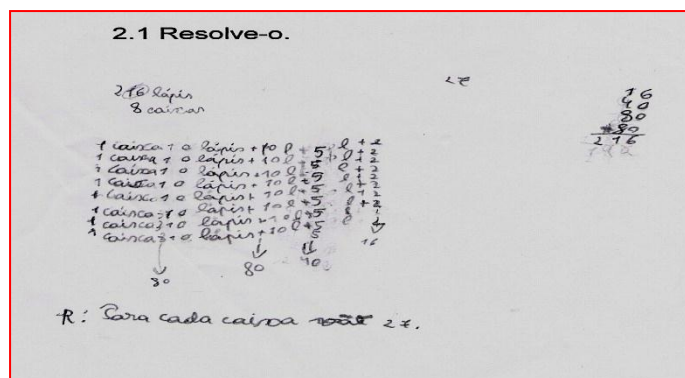 2.1 Resolve-o.
27
216 lápis
8 caixas
16
40
80
+80
216
192
1 caixa 10 lápis + 10 l + 5 l + 2
1 caixa 10 lápis + 10 l + 5 l + 2
1 caixa 10 lápis + 10 l + 5 l + 2
1 caixa 10 lápis + 10 l + 5 l + 2
1 caixa 10 lápis + 10 l + 5 l + 2
1 caixa 10 lápis + 10 l + 5 l
1 caixa 10 lápis + 10 l + 5 l
1 caixa 10 lápis + 10 l + 5
80
80
40
16
R: Para cada caixa 27.